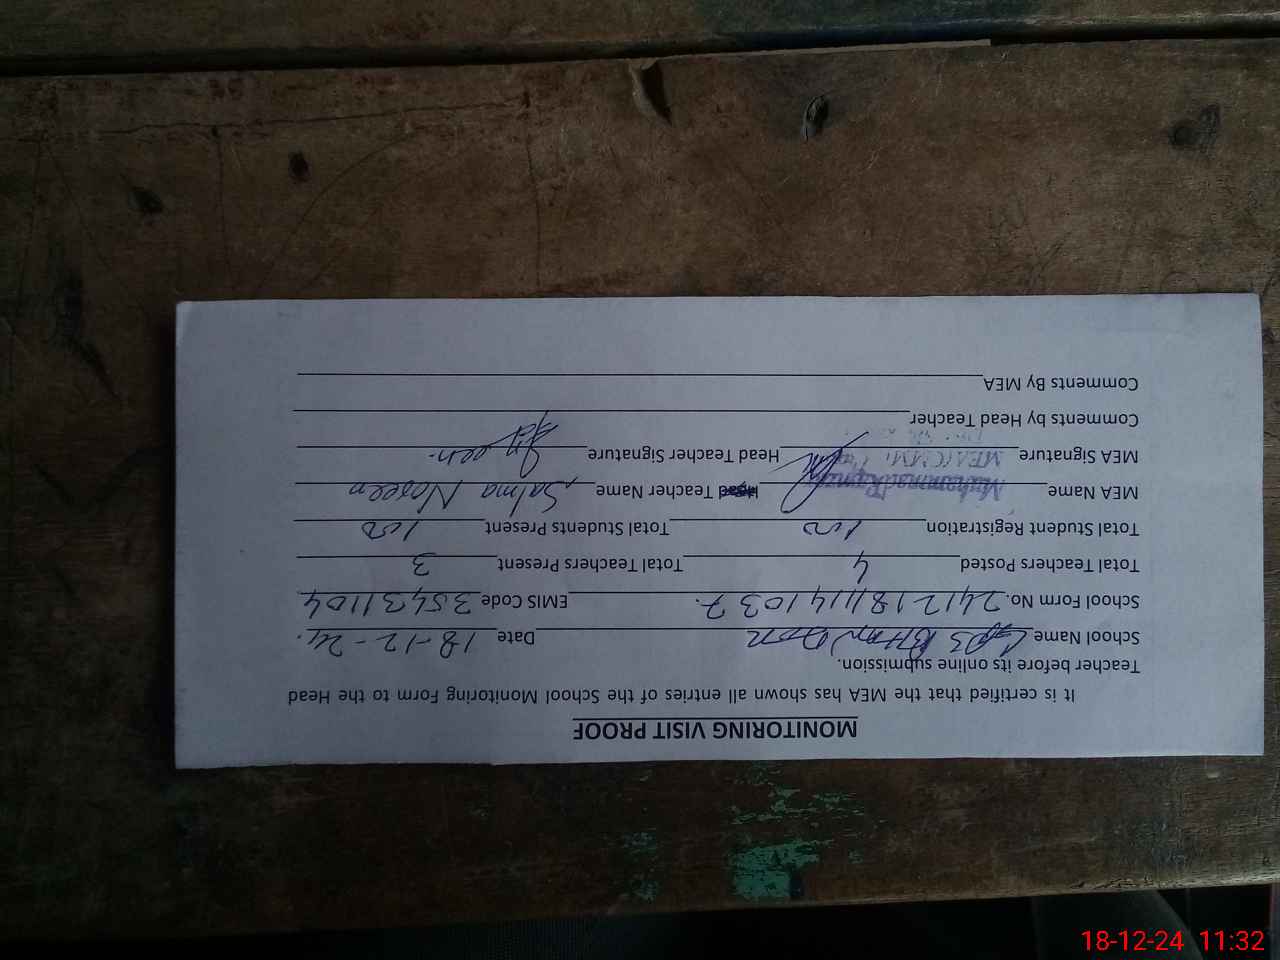 MONITORING VISIT PROOF
It is certified that the MEA has shown all entries of the School Monitoring Form to the Head
Teacher before its online submission.
School Name GPS Date 18-12-24.
School Form No. 24121811141037. EMIS Code 35431104
Total Teachers Posted 4 Total Teachers Present 3
Total Student Registration 100 Total Students Present 100
MEA Name Muhammad Teacher Name Salma Noreen
MEA Signature Head Teacher Signature
Comments by Head Teacher
Comments By MEA
18-12-24 11:32